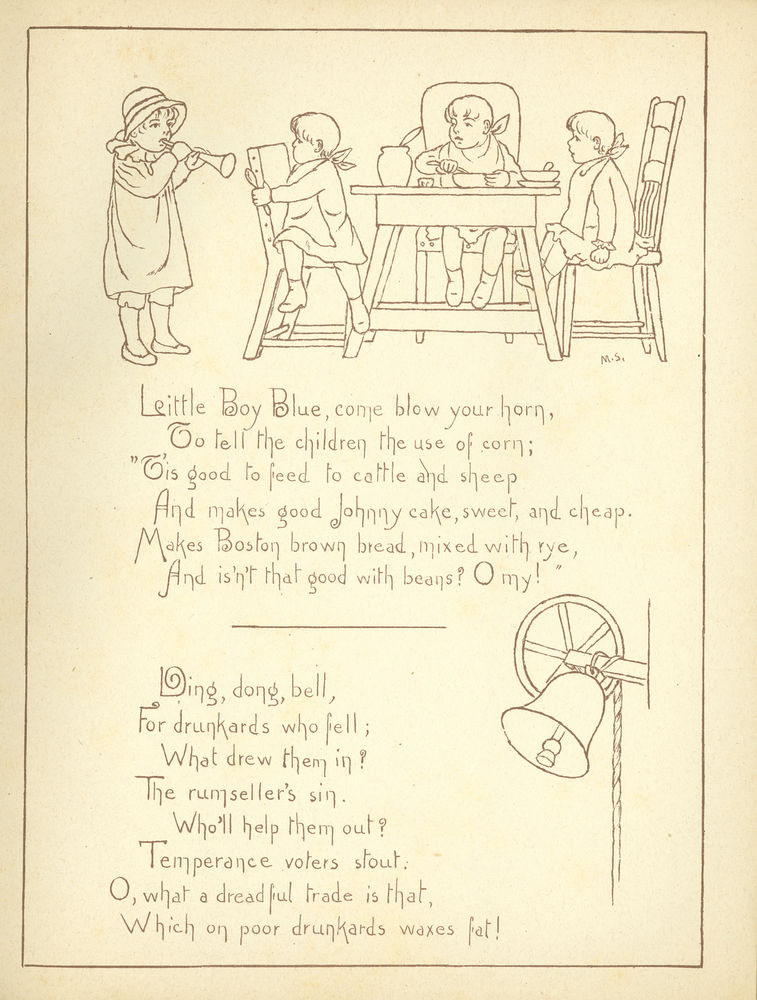 M.S.
Leittle Boy Blue, come blow your horn,
To tell the children the use of corn;
"'Tis good to feed to cattle and sheep
And makes good Johnny cake, sweet, and cheap.
Makes Boston brown bread, mixed with rye,
And is'n't that good with beans? O my!"
Ding, dong, bell,
For drunkards who fell;
What drew them in?
The rumseller's sin.
Who'll help them out?
Temperance voters stout.
O, what a dreadful trade is that,
Which on poor drunkards waxes fat!